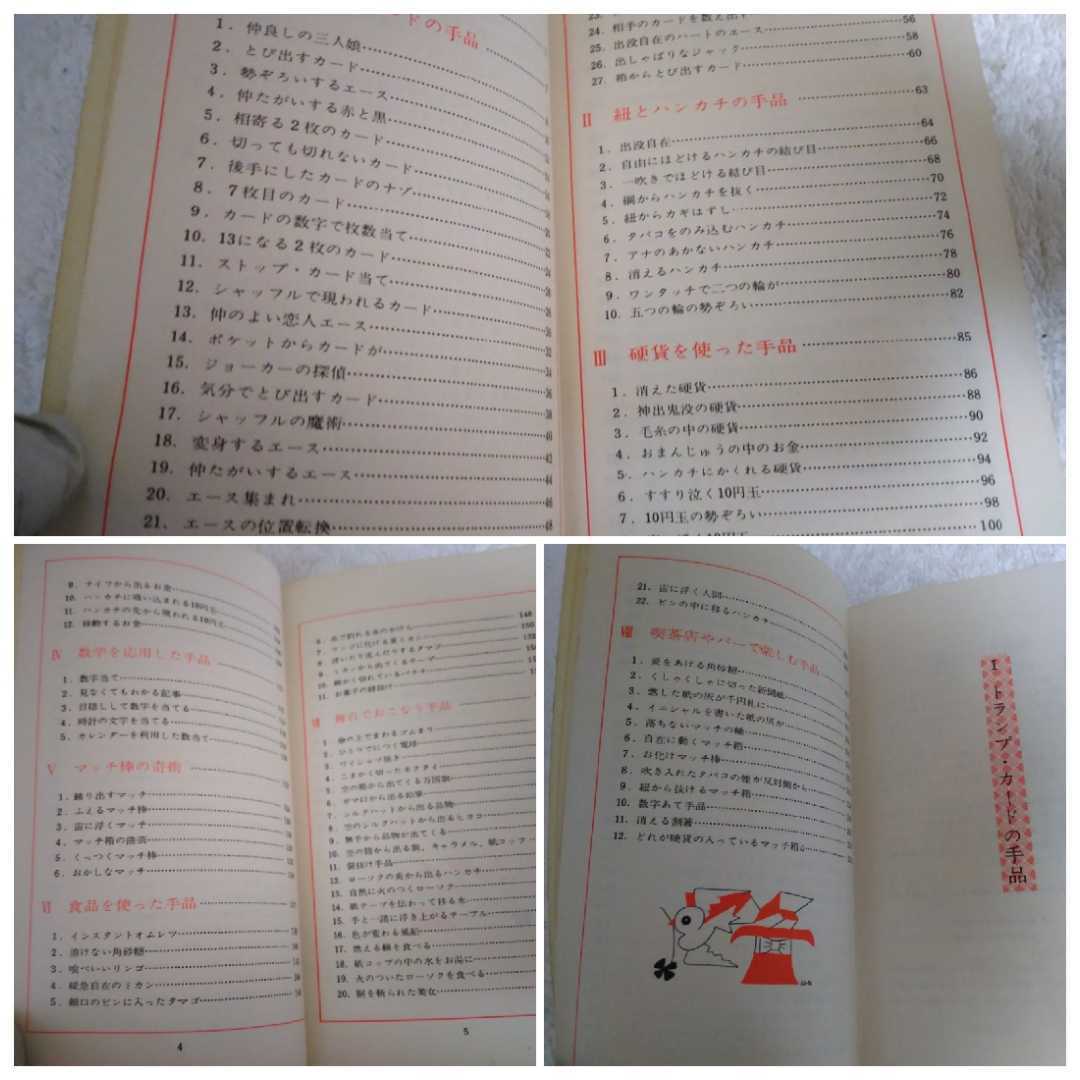 ドの手品
1. 仲良しの三人娘
2. とび出すカード
3. 勢ぞろいするエース
4. 仲たがいする赤と黒
5. 相寄る2枚のカード
6. 切っても切れないカード
7. 後手にしたカードのナゾ
8. 7枚目のカード
9. カードの数字で枚数当て
10. 13になる2枚のカード
11. ストップ・カード当て
12. シャッフルで現われるカード
13. 仲のよい恋人エース
14. ポケットからカードが
15. ジョーカーの探偵
16. 気分でとび出すカード
17. シャッフルの魔術 40
18. 変身するエース 42
19. 仲たがいするエース 44
20. エース集まれ 46
21. エースの位置転換 48
24. 相手のカードを数え出す 56
25. 出没自在のハートのエース 58
26. 出しゃばりなジャック 60
27. 箱からとび出すカード
II 紐とハンカチの手品 63
1. 出没自在 64
2. 自由にほどけるハンカチの結び目 66
3. 一吹きでほどける結び目 68
4. 綱からハンカチを抜く 70
5. 紐からカギはずし 72
6. タバコをのみ込むハンカチ 74
7. アナのあかないハンカチ 76
8. 消えるハンカチ 78
9. ワンタッチで二つの輪が 80
10. 五つの輪の勢ぞろい 82
III 硬貨を使った手品 85
1. 消えた硬貨 86
2. 神出鬼没の硬貨 88
3. 毛糸の中の硬貨 90
4. おまんじゅうの中のお金 92
5. ハンカチにかくれる硬貨 94
6. すすり泣く10円玉 96
7. 10円玉の勢ぞろい 98
100
9. ナイフから出るお金
10. ハンカチに吸い込まれる10円玉
11. ハンカチの先から現われる10円玉
12. 移動するお金
IV 数学を応用した手品
1. 数字当て
2. 見なくてもわかる記事
3. 目隠しして数字を当てる
4. 時計の文字を当てる
5. カレンダーを利用した数当て
V マッチ棒の奇術
1. 繰り出すマッチ
2. ふえるマッチ棒
3. 宙に浮くマッチ
4. マッチ箱の曲芸
5. くっつくマッチ棒
6. おかしなマッチ
VI 食品を使った手品
1. インスタントオムレツ
2. 溶けない角砂糖
3. 喰べいいリンゴ
4. 緩急自在のミカン
5. 細口のビンに入ったタマゴ
4
148
150
152
11. お菓子の紐抜け
VII 舞台でおこなう手品
1. 傘の上でまわるゴムまり
2. ひとりでにつく電球
3. ワイシャツ抜き
4. こまかく切ったネクタイ
5. 空の箱から出てくる万国旗
6. ガマ口から出る鉛筆
7. シルクハットから出る品物
8. 空のシルクハットから出るヒヨコ
9. 無手から品物が出てくる
10. 空の筒から出る飴、キャラメル、紙コップ
11. 袋抜け手品
12. ローソクの炎から出るハンカチ
13. 自然に火のつくローソク
14. 紙テープを伝わって移る水
15. 手と一緒に浮き上がるテーブル
16. 色が変わる風船
17. 燃える綿を食べる
18. 紙コップの中の水をお湯に
19. 火のついたローソクを食べる
20. 胴を斬られた美女
5
21. 宙に浮く人間
22. ビンの中に移るハンカチ
VIII 喫茶店やバーで楽しむ手品
1. 炎をあげる角砂糖
2. くしゃくしゃに切った新聞紙
3. 燃した紙の灰が千円札に
4. イニシャルを書いた紙の灰が
5. 落ちないマッチの軸
6. 自在に動くマッチ箱
7. お化けマッチ棒
8. 吹き入れたタバコの煙が反対側から
9. 紐から抜けるマッチ箱
10. 数字あて手品
11. 消える割箸
12. どれが硬貨の入っているマッチ箱?
I トランプ・カードの手品